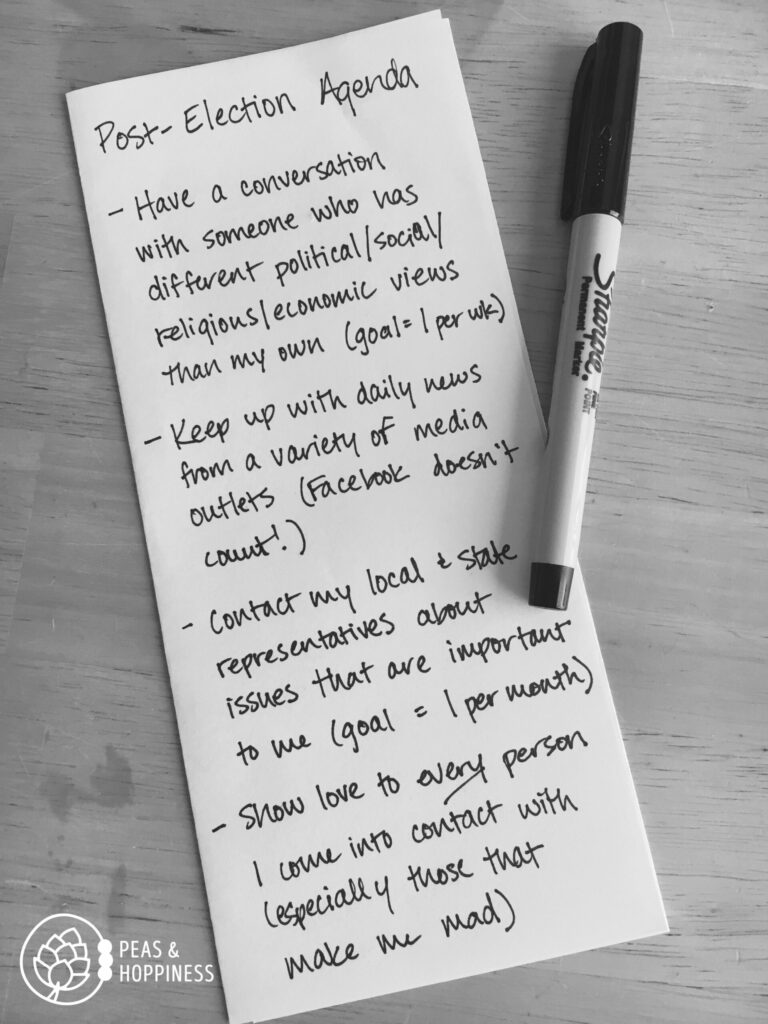 Post-Election Agenda
- Have a conversation
with someone who has
different political/social/
religious/economic views
than my own (goal = 1 per wk)
- Keep up with daily news
from a variety of media
outlets (Facebook doesn't
count!)
- Contact my local & state
representatives about
issues that are important
to me (goal = 1 per month)
- Show love to every person
I come into contact with
(especially those that
make me mad)
Sharpie.
Permanent Marker
FINE POINT
PEAS &
HOPPINESS